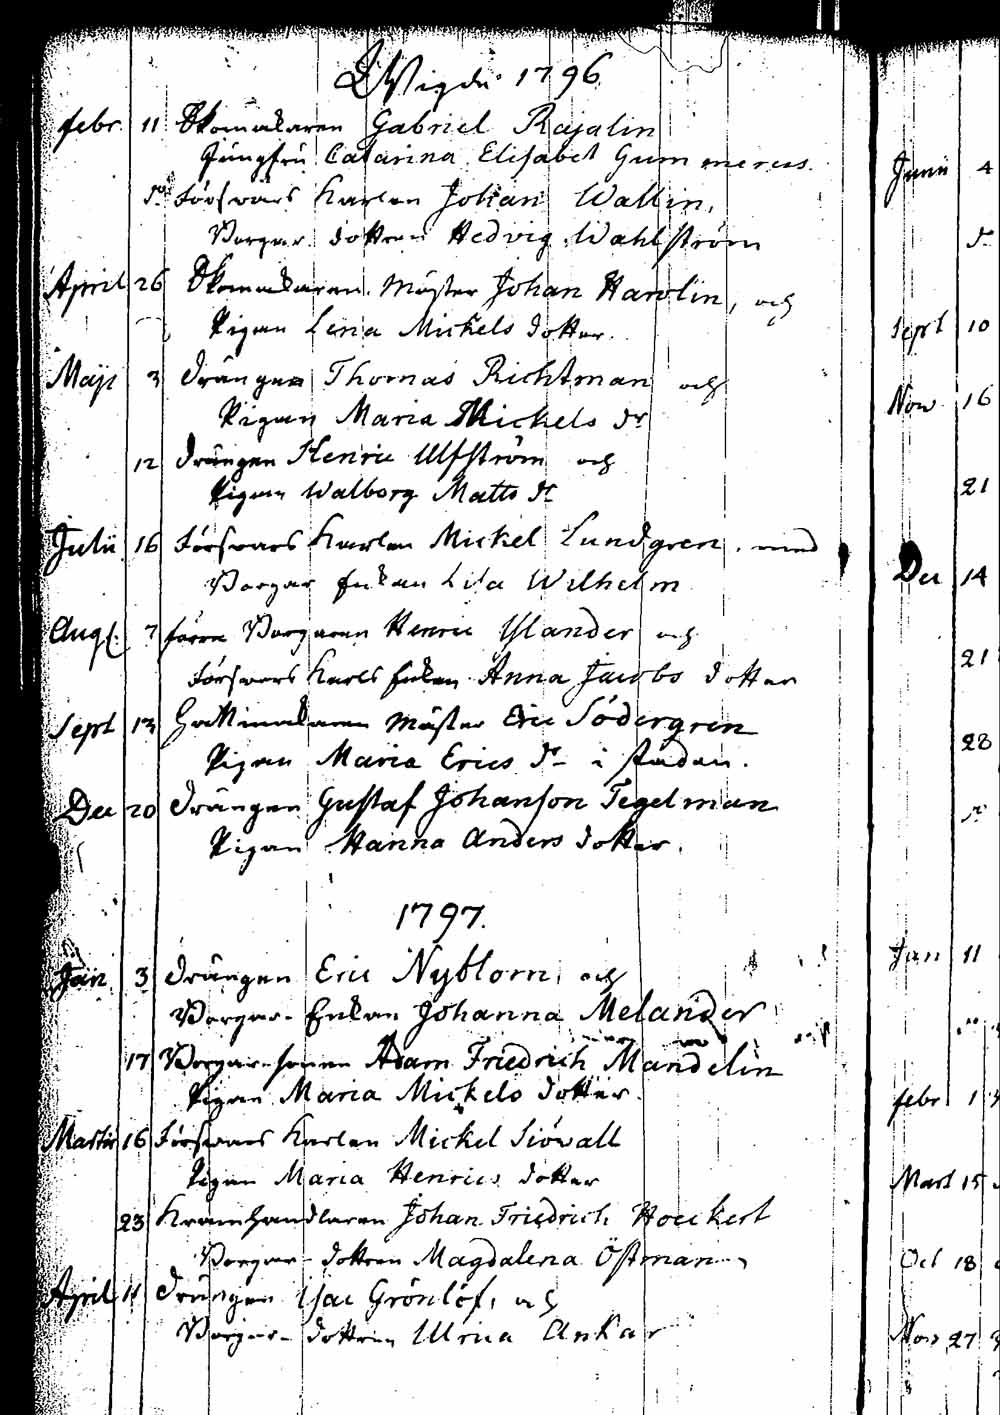 Wigde 1796
febr. 11 Skomakaren Gabriel Rajalin
Jungfru Catarina Elisabet Gummerus.
do Försvars Karlen Johan Wallin,
Borgar dottren Hedvig Wahlström
April 26 Skomakaren Mäster Johan Harolin, och
Pigan Lena Mickels dotter.
Maji 3 Drängen Thomas Richtman och
Pigan Maria Mickels dr
12 Drängen Henric Ulfström och
Pigan Walborg Matts dr
Julii 16 Försvars Karlen Mickel Lundgren, med
Borgar Enkan Lisa Wilhelm
Aug. 7 förre Borgaren Henric Ylander och
Försvars Karls Enkan Anna Jacobs dotter
Sept 13 Hattmakaren Mäster Eric Södergren
Pigan Maria Erics dr i staden.
Dec 20 Drängen Gustaf Johanson Tegelman
Pigan Hanna Anders dotter.
1797.
Jan 3 Drängen Eric Nyblom, och
Borgar-Enkan Johanna Melander
17 Borgar-sonen Adam Friedrich Mandelin
Pigan Maria Mickels dotter.
Martii 16 Försvars Karlen Mickel Siövall
Pigan Maria Henrics dotter
23 Kramhandlaren Johan Friedrich Hoeckert
Borgar-dottren Magdalena Östman
April 11 Drängen Isac Grönlöf, och
Borgar-dottren Ulrica Ankar
Junii 4
do
Sept 10
Nov 16
21
Dec 14
21
28
do
Jan 11
febr 1
Mart 15
Oct 18
Nov 27